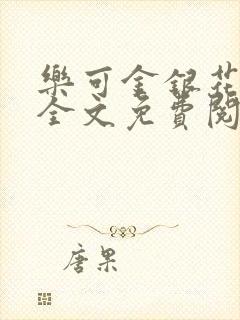 樂可金銀花
全文免費閱
唐果